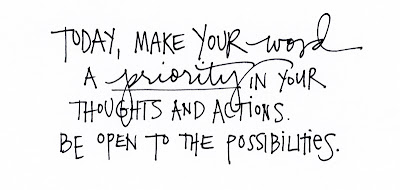 TODAY, MAKE YOUR word
A priority IN YOUR
THOUGHTS AND ACTIONS.
BE OPEN TO THE POSSIBILITIES.